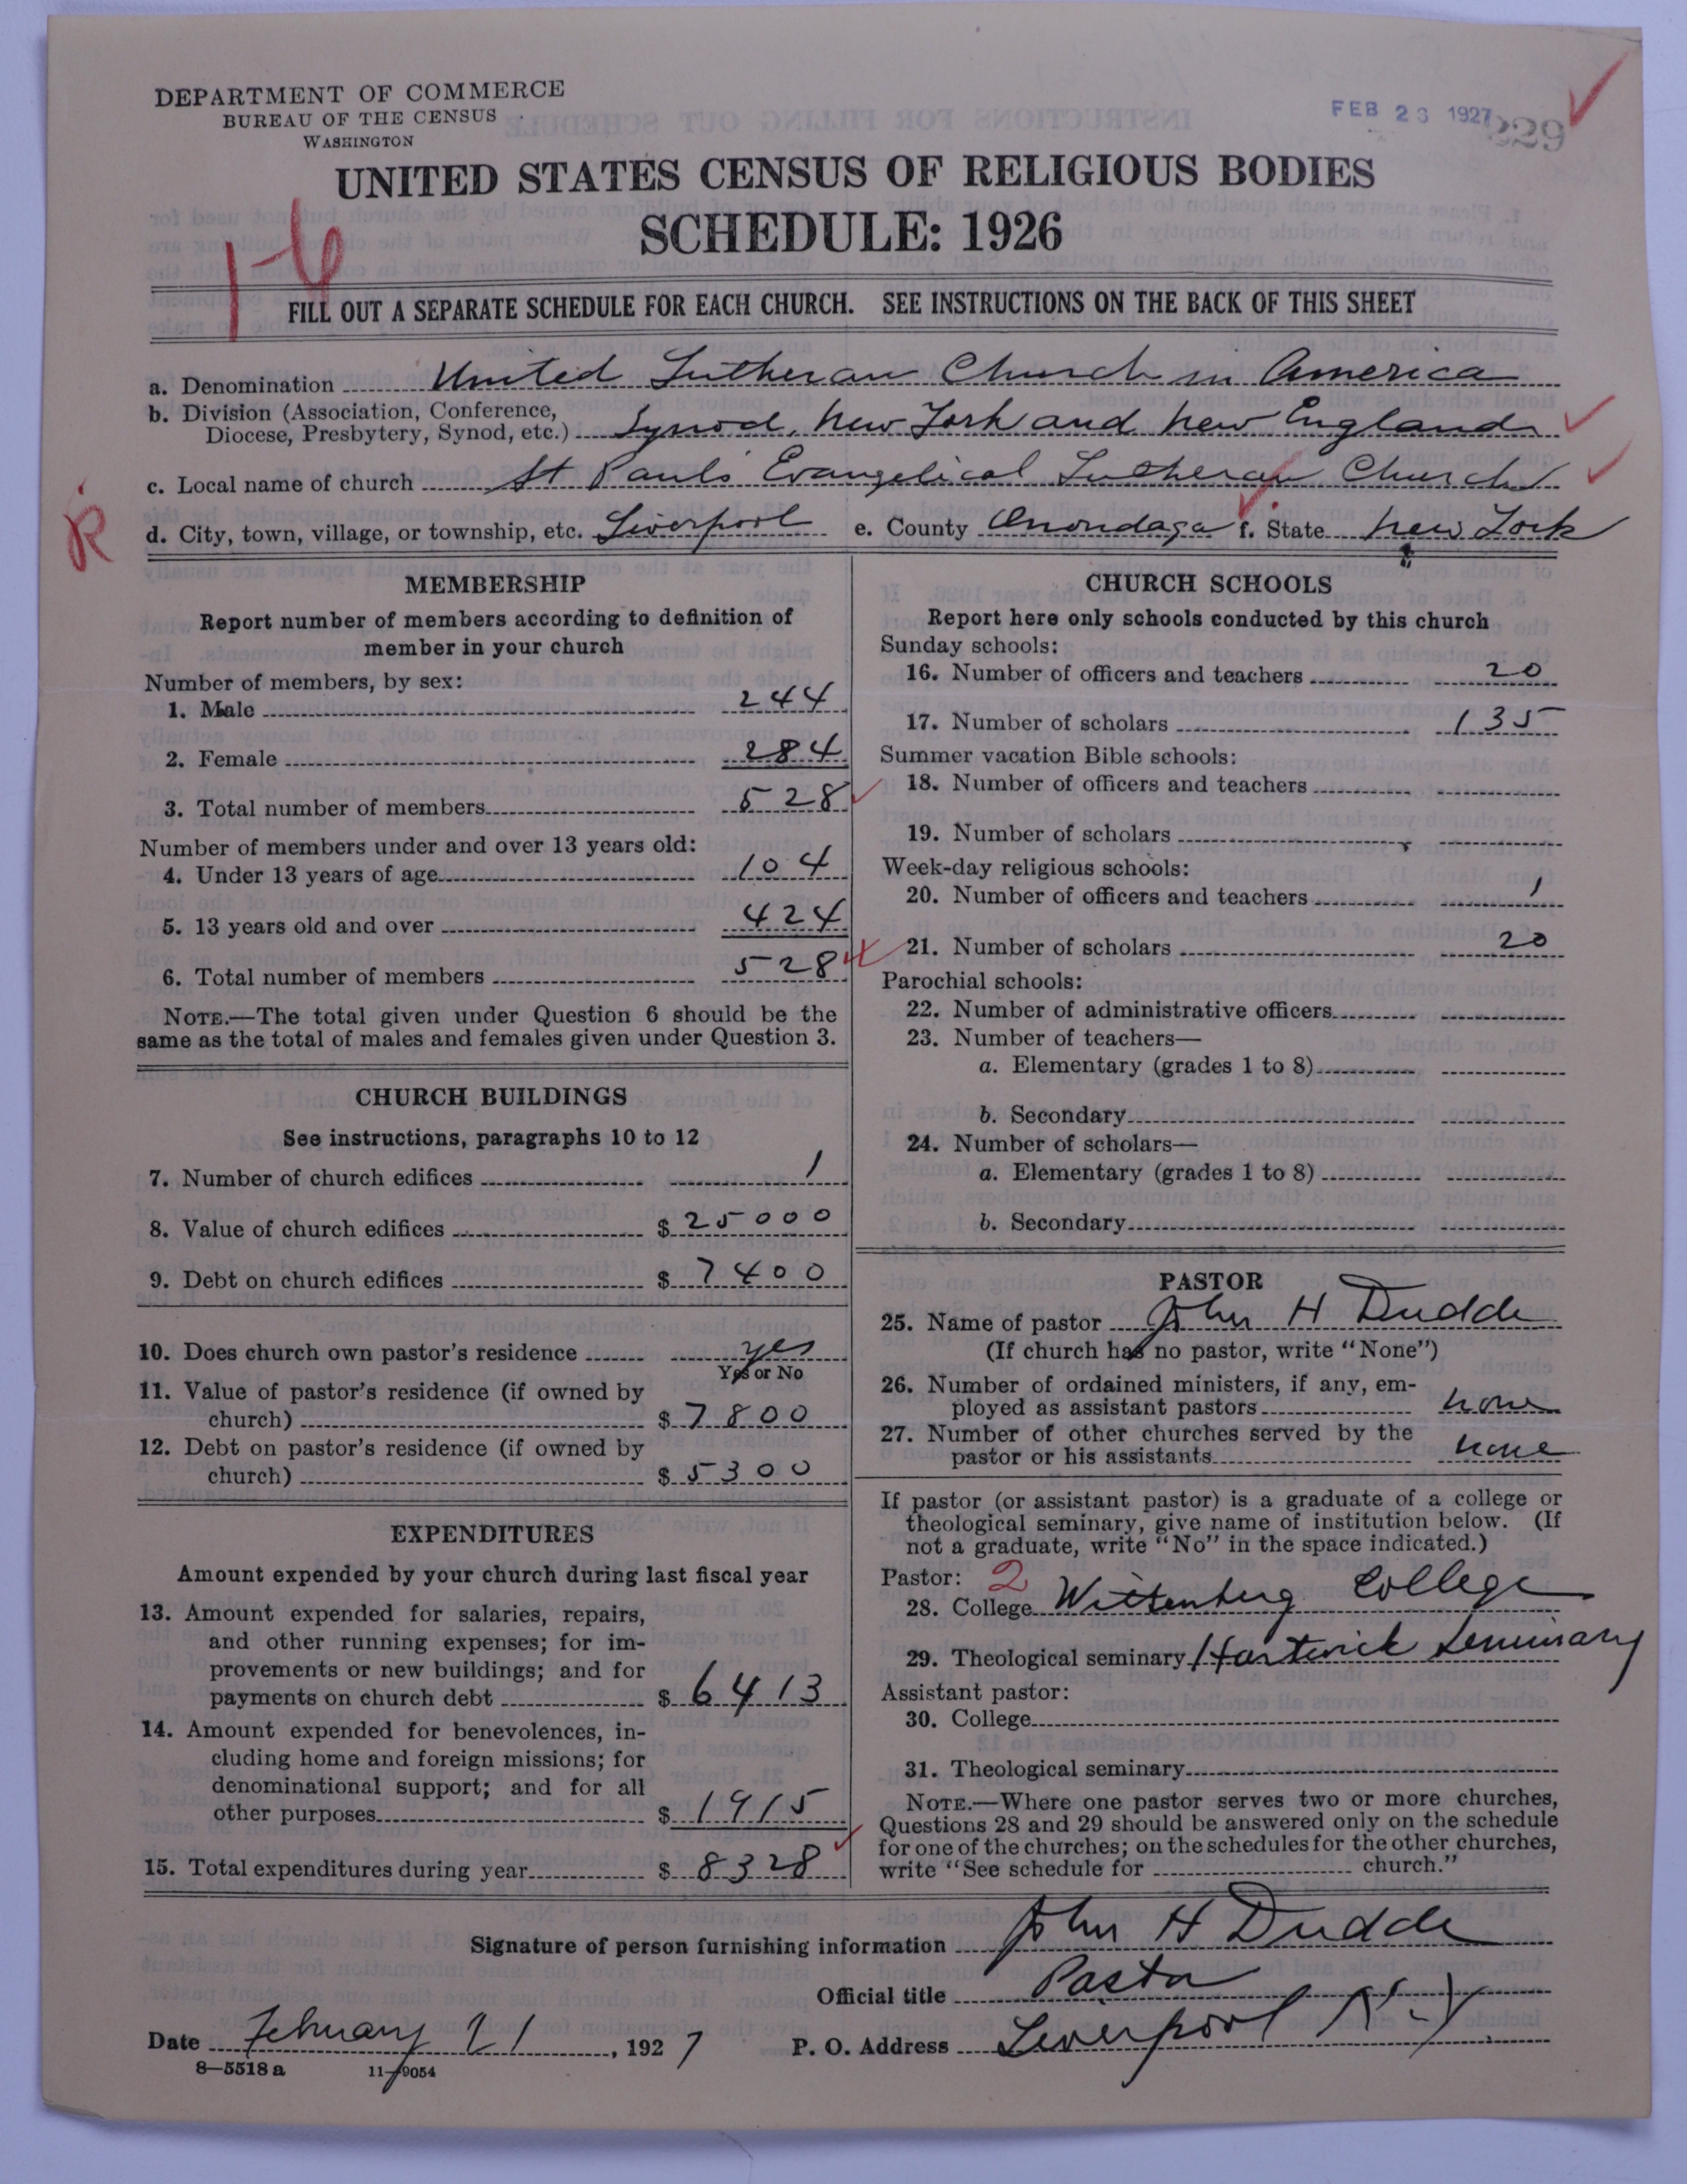 DEPARTMENT OF COMMERCE
BUREAU OF THE CENSUS
WASHINGTON
FEB 23 1927
229
UNITED STATES CENSUS OF RELIGIOUS BODIES
SCHEDULE: 1926
FILL OUT A SEPARATE SCHEDULE FOR EACH CHURCH. SEE INSTRUCTIONS ON THE BACK OF THIS SHEET
a. Denomination United Lutheran Church in America
b. Division (Association, Conference,
Diocese, Presbytery, Synod, etc.) Synod, New York and New England
c. Local name of church St Pauls Evangelical Lutheran Church
R
d. City, town, village, or township, etc. Liverpool e. County Onondaga f. State New York
MEMBERSHIP
Report number of members according to definition of
member in your church
Number of members, by sex:
1. Male 244
2. Female 284
3. Total number of members 528
Number of members under and over 13 years old:
4. Under 13 years of age 104
5. 13 years old and over 424
6. Total number of members 528
NOTE.—The total given under Question 6 should be the
same as the total of males and females given under Question 3.
CHURCH BUILDINGS
See instructions, paragraphs 10 to 12
7. Number of church edifices 1
8. Value of church edifices $ 25000
9. Debt on church edifices $ 7400
10. Does church own pastor's residence yes
Yes or No
11. Value of pastor's residence (if owned by
church) $ 7800
12. Debt on pastor's residence (if owned by
church) $ 5300
EXPENDITURES
Amount expended by your church during last fiscal year
13. Amount expended for salaries, repairs,
and other running expenses; for im-
provements or new buildings; and for
payments on church debt $ 6413
14. Amount expended for benevolences, in-
cluding home and foreign missions; for
denominational support; and for all
other purposes $ 1915
15. Total expenditures during year $ 8328
CHURCH SCHOOLS
Report here only schools conducted by this church
Sunday schools:
16. Number of officers and teachers 20
17. Number of scholars 135
Summer vacation Bible schools:
18. Number of officers and teachers
19. Number of scholars
Week-day religious schools:
20. Number of officers and teachers 1
21. Number of scholars 20
Parochial schools:
22. Number of administrative officers
23. Number of teachers—
a. Elementary (grades 1 to 8)
b. Secondary
24. Number of scholars—
a. Elementary (grades 1 to 8)
b. Secondary
PASTOR
25. Name of pastor John H Dudde
(If church has no pastor, write "None")
26. Number of ordained ministers, if any, em-
ployed as assistant pastors none
27. Number of other churches served by the
pastor or his assistants none
If pastor (or assistant pastor) is a graduate of a college or
theological seminary, give name of institution below. (If
not a graduate, write "No" in the space indicated.)
Pastor: 2
28. College Wittenberg College
29. Theological seminary Hartwick Seminary
Assistant pastor:
30. College
31. Theological seminary
NOTE.—Where one pastor serves two or more churches,
Questions 28 and 29 should be answered only on the schedule
for one of the churches; on the schedules for the other churches,
write "See schedule for church."
Signature of person furnishing information John H Dudde
Official title Pastor
Date February 21, 1927 P. O. Address Liverpool N.Y
8—5518 a 11—9054